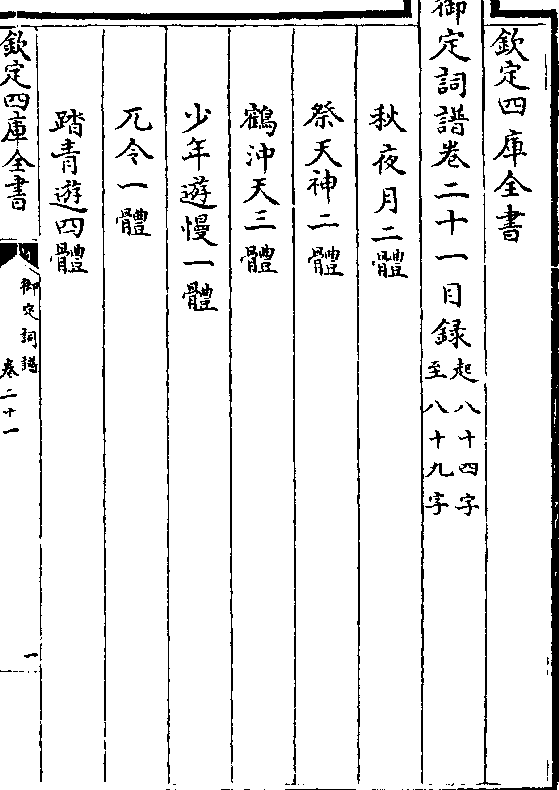 欽定四庫全書
御定詞譜卷二十一目録起八十四字至八十九字
秋夜月二體
祭天神二體
鶴沖天三體
少年遊慢一體
兀令一體
踏青遊四體
欽定四庫全書
御定詞譜
卷二十一
一